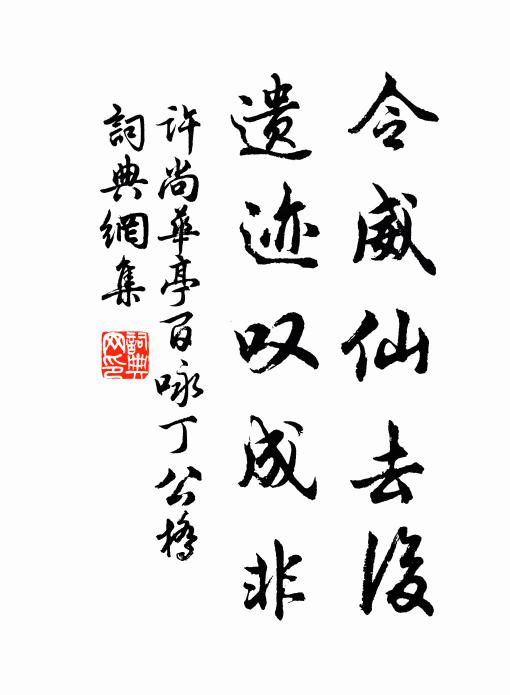 令威仙去後
遗迹叹成非
许尚華亭百咏丁公橋
詞典網集
詞典網印